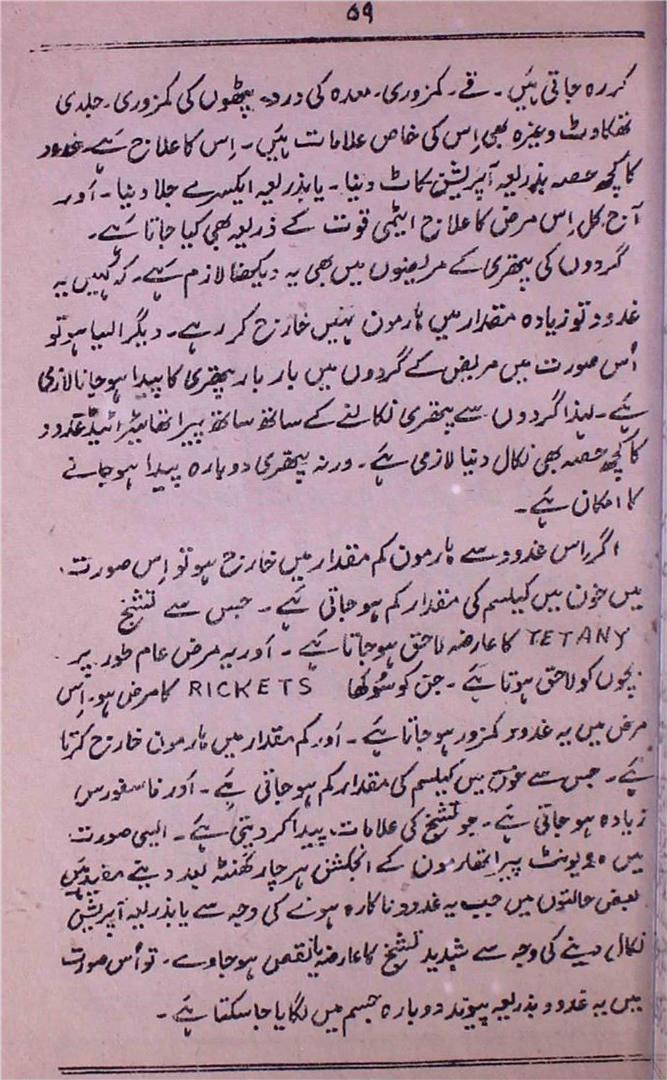 ۵۹
کر رہ جاتی ہیں۔ قے۔ کمزوری۔ معدہ کی درد۔ پٹھوں کی کمزوری۔ جلدی
تھکاوٹ وغیرہ بھی اِس کی خاص علامات ہیں۔ اِس کا علاج ہے۔ غدود
کا کچھ حصہ بذریعہ آپریشن کاٹ دینا۔ یا بذریعہ ایکسرے جلا دینا۔ اَور
آج کل اِس مرض کا علاج ایٹمی قوت کے ذریعہ بھی کیا جاتا ہے۔
گردوں کی پتھری کے مریضوں میں بھی یہ دیکھنا لازم ہے۔ کہ کہیں یہ
غدود تو زیادہ مقدار میں ہارمون نہیں خارج کر رہے۔ دیگر ایسا ہو تو
اُس صورت میں مریض کے گردوں میں بار بار پتھری کا پیدا ہو جانا لازمی
ہے۔ لہذا گردوں سے پتھری نکالنے کے ساتھ ساتھ پیرا تھائیرائیڈ غدود
کا کچھ حصہ بھی نکال دینا لازمی ہے۔ ورنہ پتھری دوبارہ پیدا ہو جانے
کا امکان ہے۔
اگر اس غدود سے ہارمون کم مقدار میں خارج ہو تو اِس صورت
میں خون میں کیلسم کی مقدار کم ہو جاتی ہے۔ جس سے تشنج
TETANY کا عارضہ لاحق ہو جاتا ہے۔ اَور یہ مرض عام طور پر
بچوں کو لاحق ہوتا ہے۔ جن کو سُوکھا RICKETS کا مرض ہو۔ اِس
مرض میں یہ غدود کمزور ہو جاتا ہے۔ اَور کم مقدار میں ہارمون خارج کرتا
ہے۔ جس سے خون میں کیلسم کی مقدار کم ہو جاتی ہے۔ اَور فاسفورس
زیادہ ہو جاتی ہے۔ جو تشنج کی علامات پیدا کر دیتی ہے۔ ایسی صورت
میں یونٹ پیراتھارمون کے انجکشن ہر چار گھنٹہ بعد دینے مفید ہیں
بعض حالتوں میں جب یہ غدود ناکارہ ہونے کی وجہ سے یا بذریعہ آپریشن
نکال دینے کی وجہ سے شدید تشنج کا عارضہ یا نقص ہو جاوے۔ تو اُس صورت
میں یہ غدود بذریعہ پیوند دوبارہ جسم میں لگایا جا سکتا ہے۔